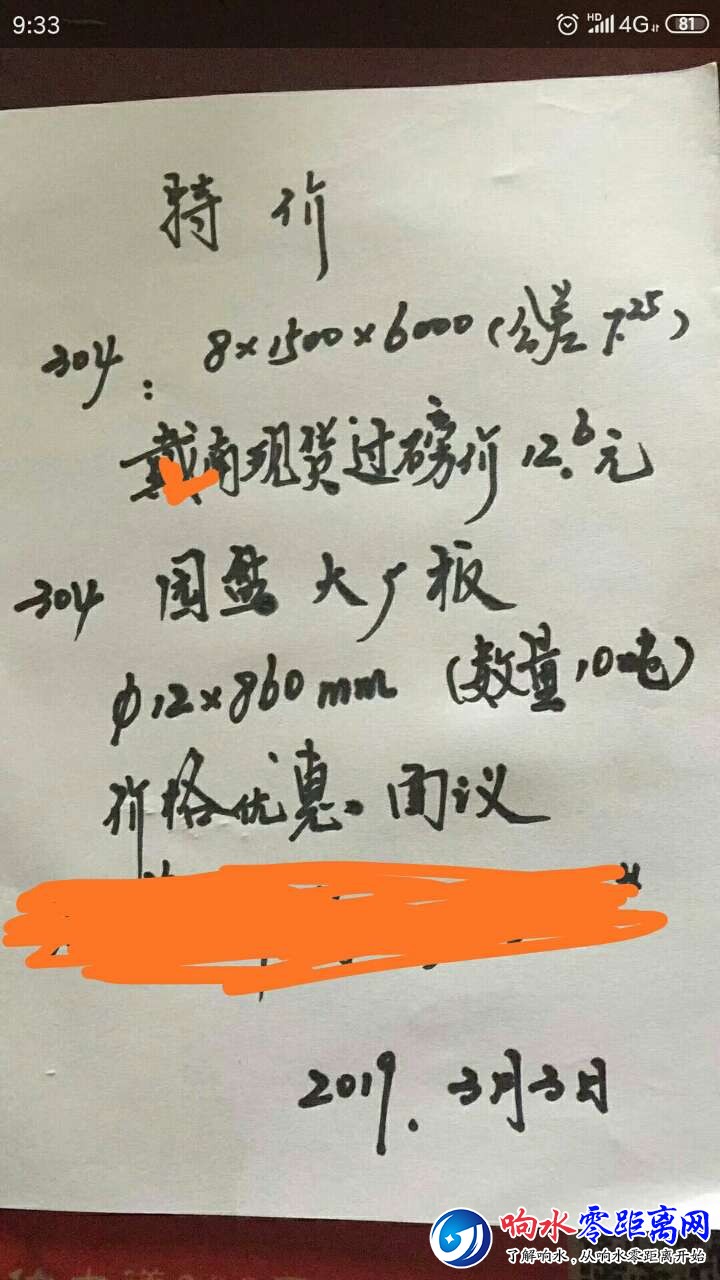 9:33
HD 4G 81
特价
304: 8×1500×6000(公差7.25)
戴南现货过磅价12.6元
304 圆盘 大厂板
φ12×860mm (数量10吨)
价格优惠。面议
2019.3月3日
响水零距离网
了解响水,从响水零距离开始